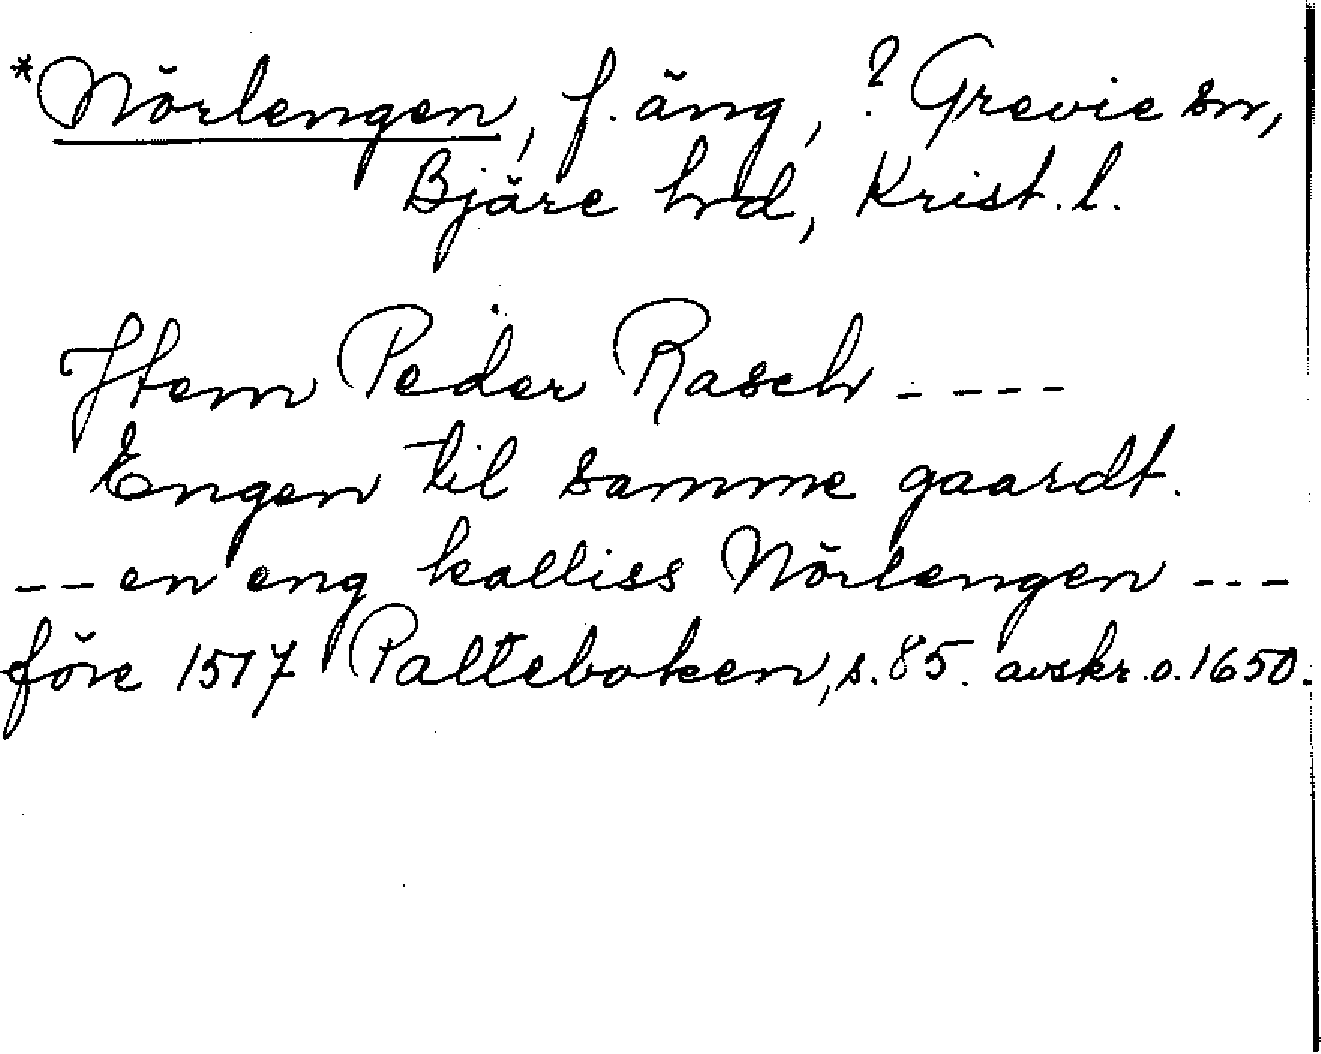 *Nörlengen, f. äng, ? Grevie sn,
Bjäre hd, Krist. l.
Item Peder Rasch - - - -
Engen til samme gaardt.
- - en eng kalliss Nörlengen - - -
före 1517 Palteboken, s. 85. avskr. o. 1650.